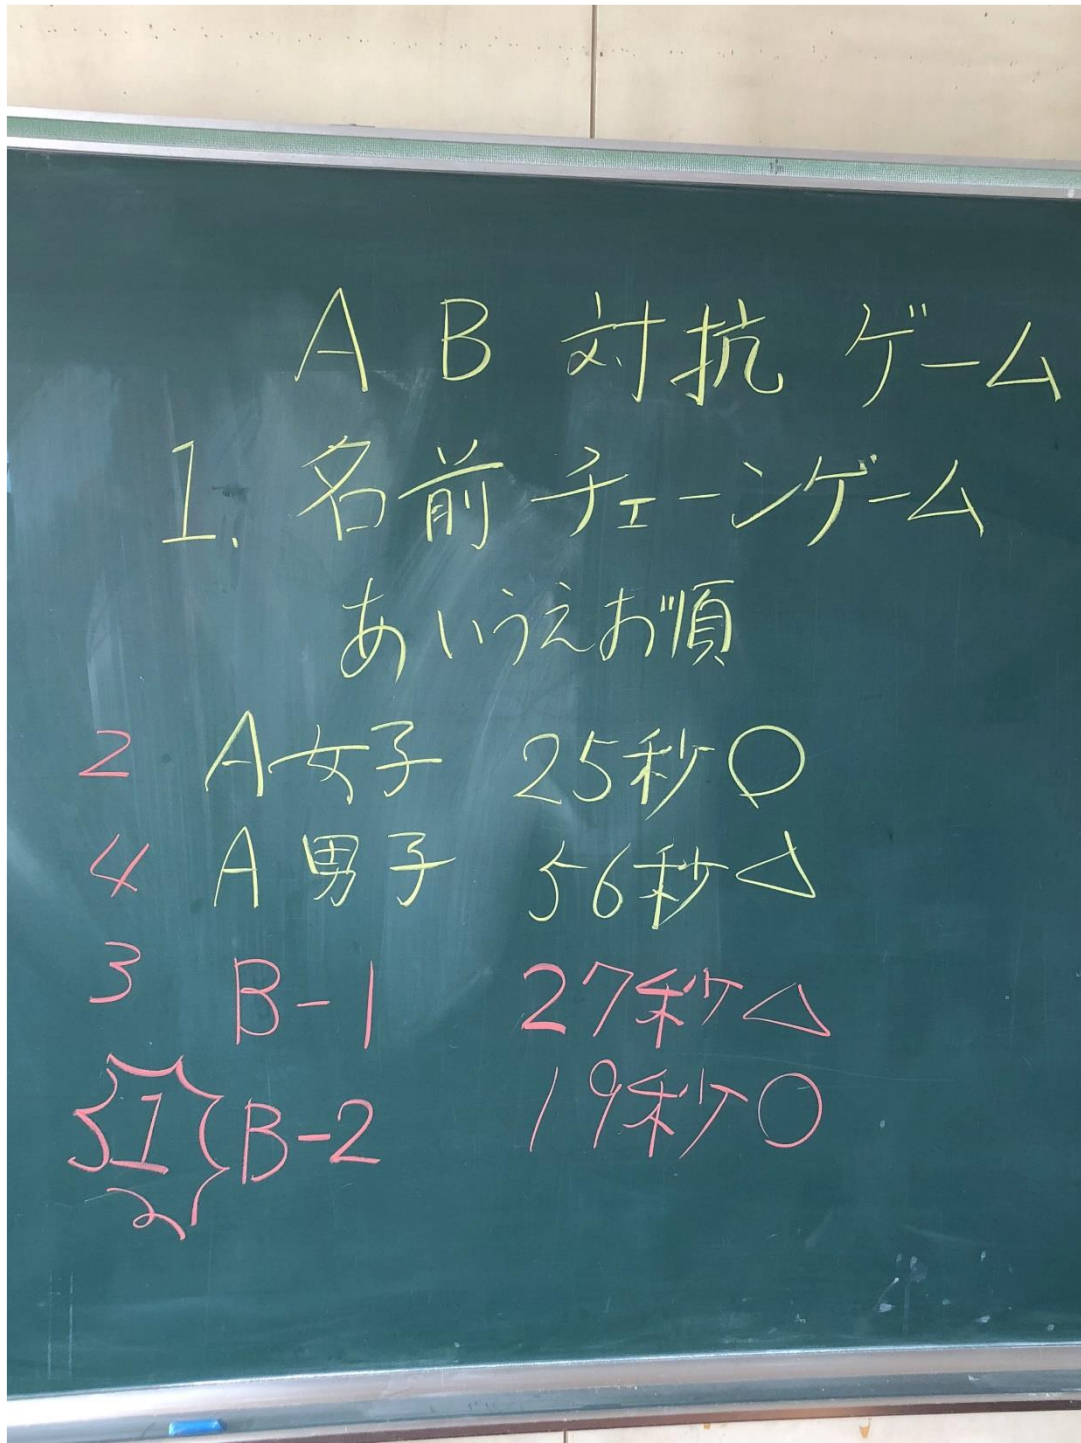 A B 対抗 ゲーム
1. 名前チェーンゲーム
あいうえお順
2 A女子 25秒○
4 A男子 56秒△
3 B-1 27秒△
1 B-2 19秒○